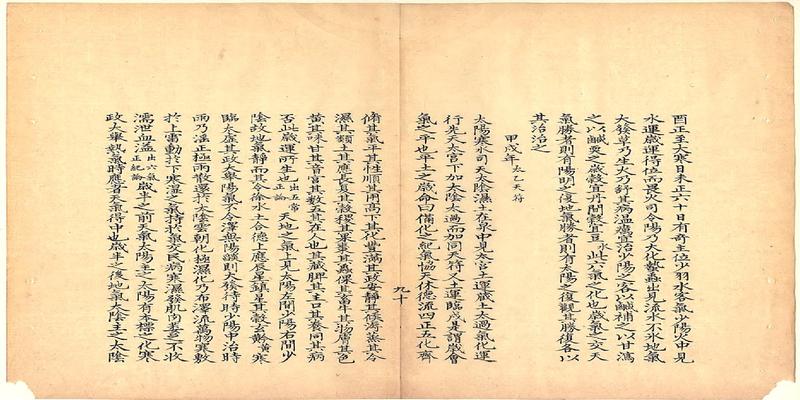 酉正至大寒日未正六十日有奇主位少羽水客氣少陽火中見
水運歲運得位而畏火司令陽乃大化蟄蟲出見流水不氷地氣
大發草乃生火乃舒其病温癘宜治少陽之客以鹹補之以甘瀉
之以鹹耎之歲穀宜丹間穀宜豆此六氣之化也歲氣之交天
氣勝者則有陽明之復地氣勝者則有太陽之復觀其勝復各以
其治治之
甲戌年太乙天符
太陽寒水司天太陰濕土在泉中見太宫土運歲土太過氣化運
行先天太宫下加太陰太過而加同天符土運臨戌是謂歲會
氣之平也平土之歲命曰備化之紀氣協天休德流四正五化齊
九十
脩其氣平其性順其用高下其化豐滿其政安靜其候溽蒸其令
濕其類土其應長夏其穀稷其果棗其蟲倮其畜牛其物膚其色
黄其味甘其音宫其數五其在人也其藏脾其主口其養肉其病
否此歲運所生也出五常正論天地之氣上見太陽左間少陽右間少
陰故地氣靜而其令徐水土合德上應辰星鎮星其穀玄黅寒
臨太虚其政大舉陽氣不令澤無陽燄則火發待時少陽中治時
雨乃涯止極雨散還於太陰雲朝北極濕化乃布澤流萬物寒敷
於上雷動於下寒濕之氣持於氣交民病寒濕發肌肉萎足不收
濡泄血溢出六氣正紀論歲半之前天氣太陽主之太陽有本標之化寒
政大舉熱氣時應者天氣得中也歲半之後地氣太陰主之太陰